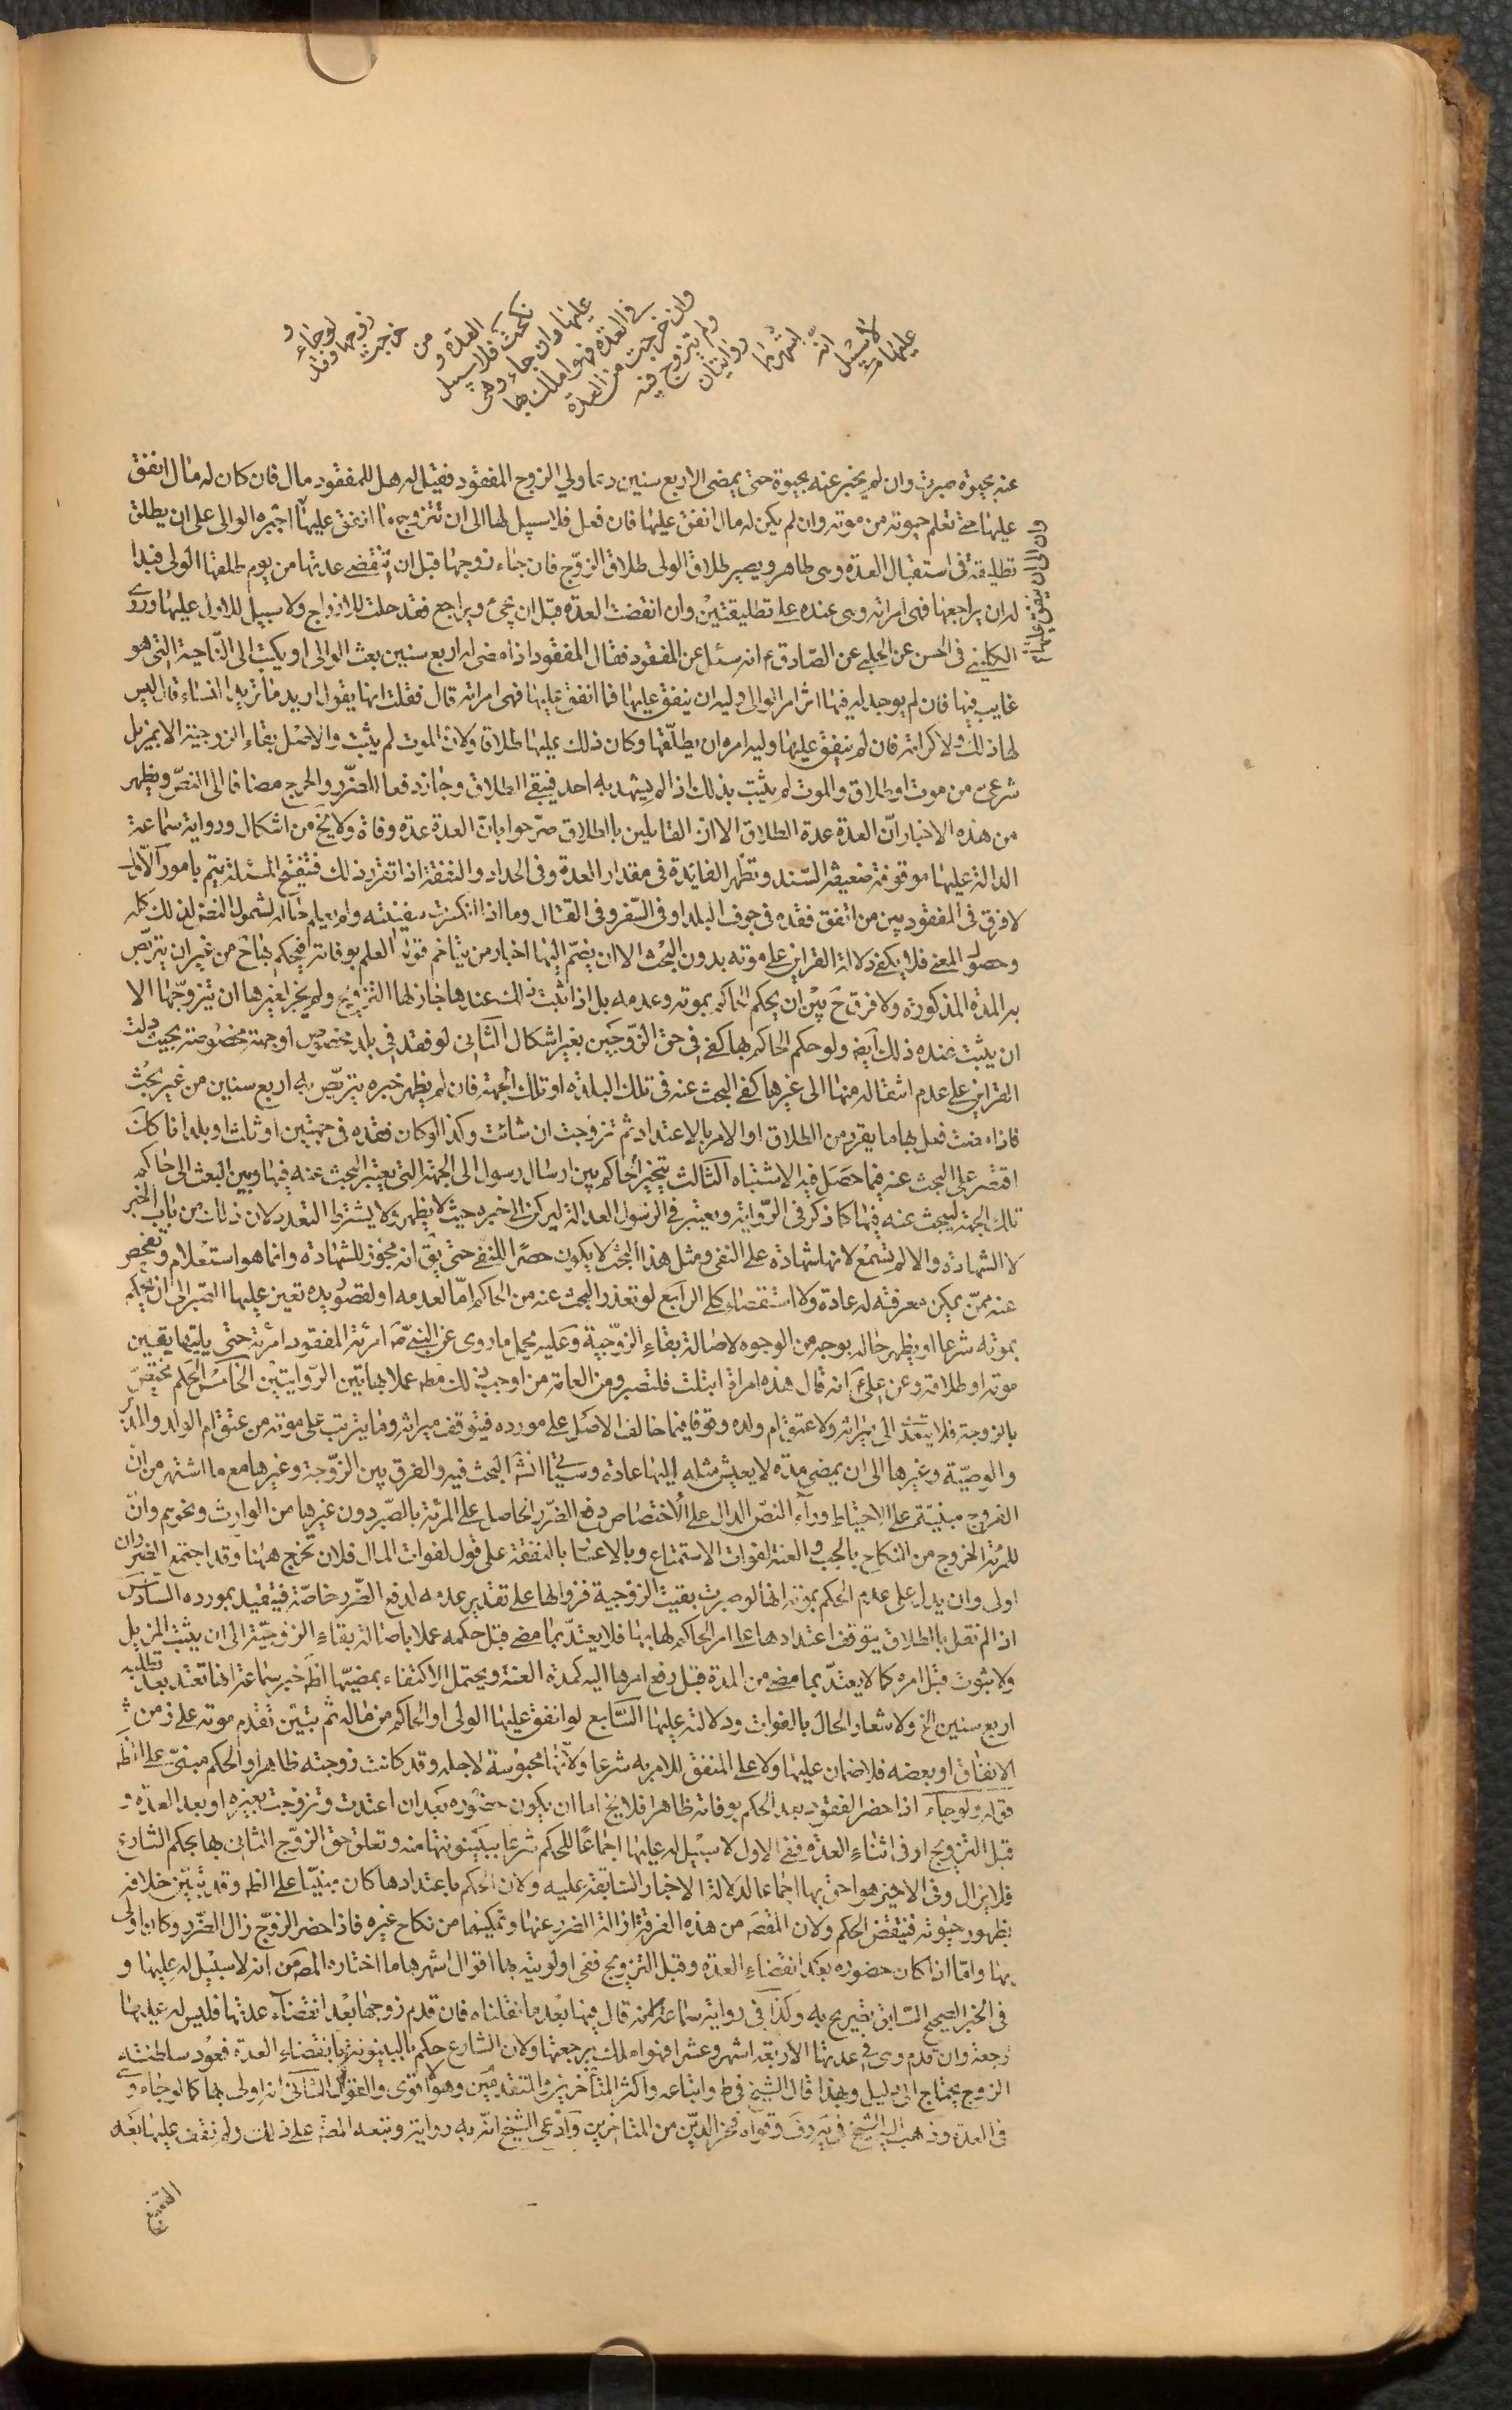 ولو جاء
زوجها وقد
خرجت
من
العدة و
نكحت فلا سبيل
عليها وان جاء وهى
في العدة فهو املك بها
وان خرجت من العدة
ولم يتزوج فيه
روايتان
اشهرهما
انه
لا سبيل
عليها
عنه بحيوة صبرت وان لم يخبر عنه بحيوة حتى يمضى الاربع سنين دعا ولي الزوج المفقود فقيل له هل للمفقود مال فان كان له مال انفق
عليها حتى تعلم حيوته من موته وان لم يكن له مال انفق عليها فان فعل فلا سبيل لها الى ان تتزوج ما انفق عليها اجبره الوالى على ان يطلق
وان ابى ان ينفق عليها
تطليقة فى استقبال العدة وهى طاهر ويصير طلاق الولى طلاق الزوج فان جاء زوجها قبل ان تنقضى عدتها من يوم طلقها الولى فبدا
له ان يراجعها فهى امراته وهى عنده على تطليقتين وان انقضت العدة قبل ان يجئ ويراجع فقد حلت للازواج ولا سبيل للاول عليها وروى
الكلينى فى الحسن عن الحلبى عن الصادق ع انه سئل عن المفقود فقال المفقود اذا مضى له اربع سنين بعث الوالى او يكتب الى الناحية التى هو
غايب فيها فان لم يوجد له فيها اثر امر الوالى وليه ان ينفق عليها فما انفق عليها فهى امراته قال فقلت انها يقول اريد ما تريد النساء قال ليس
لها ذلك ولا كرامة فان لم ينفق عليها وليه امره ان يطلقها وكان ذلك عليها طلاقا ولان الموت لم يثبت والاصل بقاء الزوجية الا بمزيل
شرعى من موت او طلاق والموت لم يثبت بذلك اذ لم يشهد به احد فيبقى الطلاق وجاز دفعا للضرر والحرج مضافا الى النص ويظهر
من هذه الاخبار ان العدة عدة الطلاق الا ان القايلين بالطلاق صرحوا بان العدة عدة وفاة ولا يخ من اشكال ورواية سماعة
الدالة عليها موقوفة ضعيفة السند وتظهر الفايدة فى مقدار العدة وفى الحداد والنفقة اذا تقرر ذلك فتنقيح المسئلة يتم بامور الاول
لا فرق فى المفقود بين من اتفق فقده فى جوف البلد او فى السفر وفى القتال وما اذا انكسرت سفينته ولم يعلم حاله لشمول النص لذلك كله
وحصول المعنى فلا يكفى دلالة القراين على موته بدون البحث الا ان ينضم اليها اخبار من يتاخم قوله العلم بوفاته فيحكم بها ح من غير ان يتربص
به المدة المذكورة ولا فرق ح بين ان يحكم الحاكم بموته وعدمه بل اذا ثبت ذلك عندها جاز لها التزويج ولم يجز لغيرها ان يتزوجها الا
ان يثبت عنده ذلك ايضا ولو حكم الحاكم بها كفى فى حق الزوجين بغير اشكال الثانى لو فقد فى بلد مخصوص او جهة مخصوصة بحيث دلت
القراين على عدم انتقاله منها الى غيرها كفى البحث عنه فى تلك البلدة او تلك الجهة فان لم يظهر خبره يتربص به اربع سنين من غير بحث
فاذا مضت فعل بها ما يقرر من الطلاق او الامر بالاعتداد ثم تزوجت ان شائت وكذا لو كان فقده فى جهتين او ثلث او بلدا فا كلت
اقتصر على البحث عنه فيما حصل فيه الاشتباه الثالث يتخير الحاكم بين ارسال رسول الى الجهة التى يعتبر البحث عنه فيها وبين البعث الى حاكم
تلك الجهة ليبحث عنه فيها كما ذكر فى الرواية ويعتبر فى الرسول العدالة ليركن الى خبره حيث لا يظهر ولا يشترط التعدد لان ذلك من باب الخبر
لا الشهادة والا لم تسمع لانها شهادة على النفى ومثل هذا البحث لا يكون حصرا للنفى حتى يق انه مجوز للشهادة وانما هو استعلام وتفحص
عنه ممن يمكن معرفته له عادة ولا استقصاء كلى الرابع لو تعذر البحث عنه من الحاكم اما لعدمه او لقصور يده تعين عليها الصبر الى ان يحكم
بموته شرعا او يظهر حاله بوجه من الوجوه لاصالة بقاء الزوجية وعليه يحمل ما روى عن النبى ص امرئة المفقود امرئة حتى ياتيها يقين
موته او طلاقه وعن على ع انه قال هذه امراة ابتلت فلتصبر ومن العامة من اوجب ذلك مطه عملا بهاتين الروايتين الخامس الحكم مختص
بالزوجة فلا يتعدى الى ميراثه ولا عتق ام ولده وقوفا فيما خالف الاصل على مورده فيتوقف ميراثه وما يترتب على موته من عتق ام الولد والمدبر
والوصية وغيرها الى ان يمضى مدة لا يعيش مثله اليها عادة وسياتى انشا البحث فيه والفرق بين الزوجة وغيرها مع ما اشتهر من ان
الفروج مبنية على الاحتياط وراء النص الدال على الاختصاص دفع الضرر الحاصل على المرئة بالصبر دون غيرها من الوارث ونحوهم وان
للمرئة الخروج من النكاح بالجب والعنة لفوات الاستمتاع وبالاعسار بالنفقة على قول لفوات المال فلان تخرج ههنا وقد اجتمع الضرران
اولى وان يدل على عدم الحكم بموته انها لو صبرت بقيت الزوجية فزوالها على تقدير عدمه لدفع الضرر خاصة فيتقيد بمورده السادس
اذا لم نقل بالطلاق يتوقف اعتدادها على امر الحاكم لها بها فلا يعتد بما مضى قبل حكمه عملا باصالة بقاء الزوجية الى ان يثبت المزيل
ولا ثبوت قبل امره كما لا يعتد بما مضى من المدة قبل رفع امرها اليه كمدة العنة ويحتمل الاكتفاء بمضيها لظ خبر سماعة انها تعتد بعد تطلبه
اربع سنين الخ ولاشعار الحال بالوفات ودلالته عليها السابع لو انفق عليها الولى او الحاكم من ماله ثم تبين تقدم موته على زمن
الانفاق او بعضه فلا ضمان عليها ولا على المنفق للامر به شرعا ولانها محبوسة لاجله وقد كانت زوجته ظاهرا والحكم مبنى على الظ
قوله ولو جاء اذا حضر المفقود بعد الحكم بوفاته ظاهرا فلا يخ اما ان يكون حضوره بعد ان اعتدت وتزوجت بغيره او بعد العدة و
قبل التزويج او فى اثناء العدة ففى الاول لا سبيل له عليها اجماعا للحكم شرعا ببينونتها منه وتعلق حق الزوج الثانى بها بحكم الشارع
فلا يزال وفى الاخير هو احق بها اجماعا لدلالة الاخبار السابقة عليه ولان الحكم باعتدادها كان مبنيا على الظ وقد تبين خلافه
بظهور حيوته فينقض الحكم ولان المقصد من هذه الفرقة ازالة الضرر عنها وتمكينها من نكاح غيره فاذا حضر الزوج زال الضرر وكان اولى
بها واما اذا كان حضوره بعد انقضاء العدة وقبل التزويج ففى اولويته بها اقوال اشهرها ما اختاره المص من انه لا سبيل له عليها و
فى الخبر الصحيح السابق تصريح به وكذا فى رواية سماعة لانه قال فيها بعد ما نقلناه فان قدم زوجها بعد انقضاء عدتها فليس له عليها
رجعة وان قدم وهى فى عدتها الاربعة اشهر وعشرا فهو املك برجعتها ولان الشارع حكم بالبينونة بانقضاء العدة فعود سلطنته
الزوج يحتاج الى دليل وبهذا قال الشيخ فى ط واتباعه واكثر المتأخرين والمتقدمين وهو الاقوى والقول الثانى انه اولى بها كما لو جاء وهى
فى العدة وذهب اليه الشيخ فى يه وف وقواه فخر الدين من المتاخرين وادعى الشيخ ان به رواية وتبعه المص على ذلك ولم نقف عليها بعد
التتبع